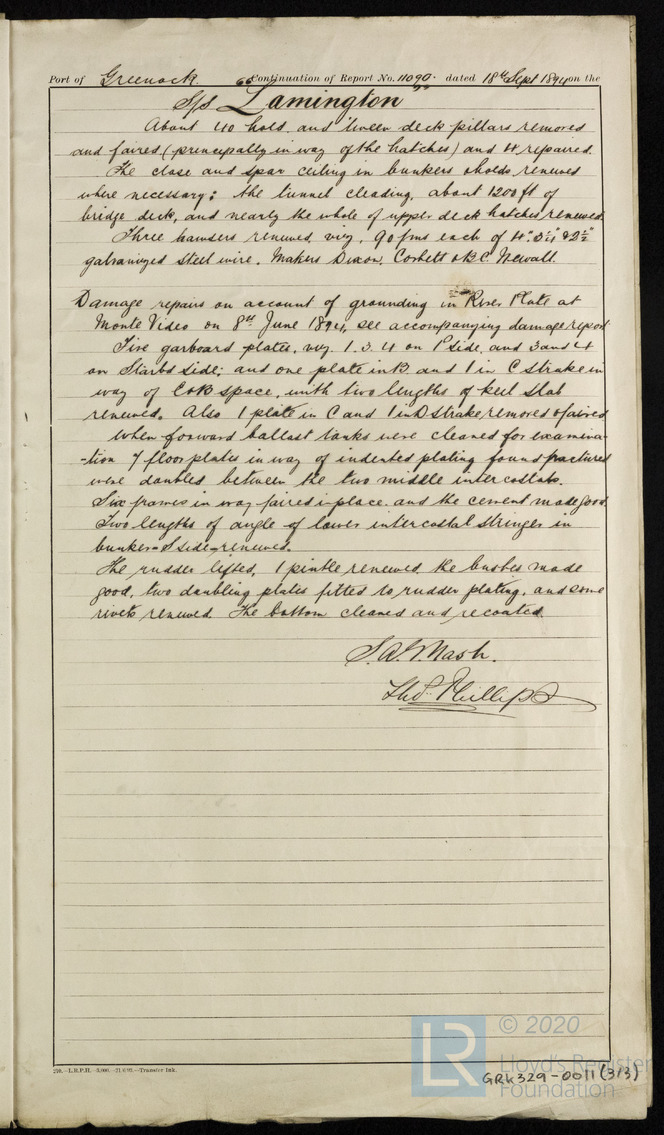 Port of Greenock. Continuation of Report No. 11090. dated 18th Sept 1894 on the
S/s Lamington
About 40 hold and 'tween deck pillars removed
and faired (principally in way of the hatches) and 4 repaired.
The close and spar ceiling in bunkers & holds renewed
where necessary; the tunnel cleading, about 1200 ft of
bridge deck, and nearly the whole of upper deck hatches renewed.
Three hawsers renewed viz, 90 fms each of 4", 3½" & 2½"
galvanized steel wire. Makers Dixon, Corbett & R.S. Newall.
Damage repairs on account of grounding in River Plate at
Monte Video on 8th June 1894, see accompanying damage report
Five garboard plates, viz. 1. 3. 4 on P side, and 3 and 4
on Starbd side; and one plate in B and 1 in C strake in
way of E & B space, with two lengths of keel slab
renewed. Also 1 plate in C and 1 in D strake removed & faired
When forward ballast tanks were cleaned for examina-
-tion 7 floor plates in way of indented plating found fractured
were doubled between the two middle intercostals.
Six frames in way faired in place and the cement made good.
Two lengths of angle of lower intercostal stringer in
bunker S side renewed.
The rudder lifted, 1 pintle renewed, the bushes made
good, two doubling plates fitted to rudder plating, and some
rivets renewed. The bottom cleaned and recoated.
Mash.
Thos. Phillips
L.R.P.H. Transfer Ink.
LR
© 2020
Lloyd's Register
Foundation
GRK329-0011(3/3)